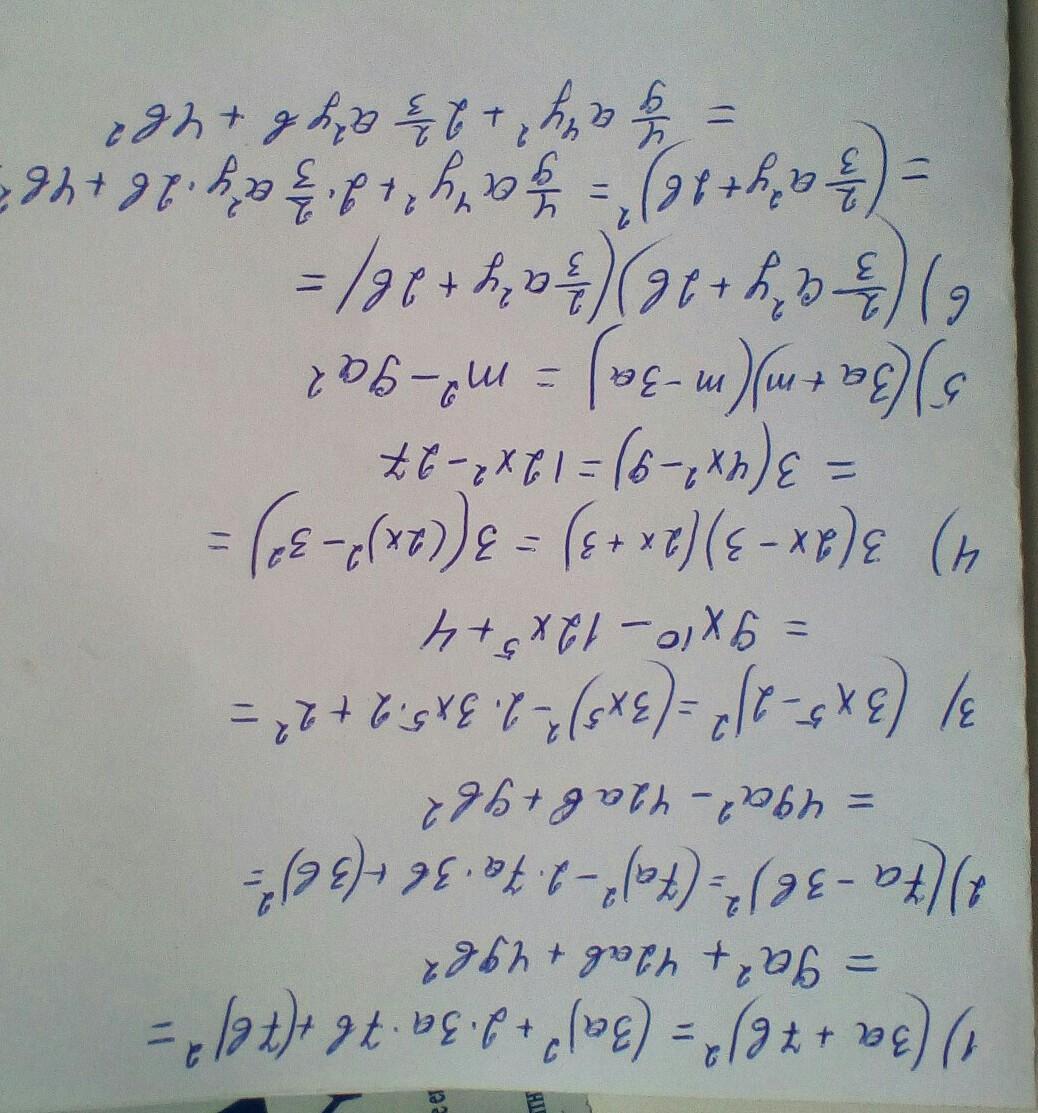 1) (3a + 7в)² = (3a)² + 2·3a·7в + (7в)² =
= 9a² + 42aв + 49в²
2) (7a - 3в)² = (7a)² - 2·7a·3в + (3в)² =
= 49a² - 42aв + 9в²
3) (3x⁵ - 2)² = (3x⁵)² - 2·3x⁵·2 + 2² =
= 9x¹⁰ - 12x⁵ + 4
4) 3(2x - 3)(2x + 3) = 3((2x)² - 3²) =
= 3(4x² - 9) = 12x² - 27
5) (3a + m)(m - 3a) = m² - 9a²
6) (2/3 a²y + 2в)(2/3 a²y + 2в) =
= (2/3 a²y + 2в)² = 4/9 a⁴y² + 2·2/3 a²y·2в + 4в²
= 4/9 a⁴y² + 2 2/3 a²yв + 4в²